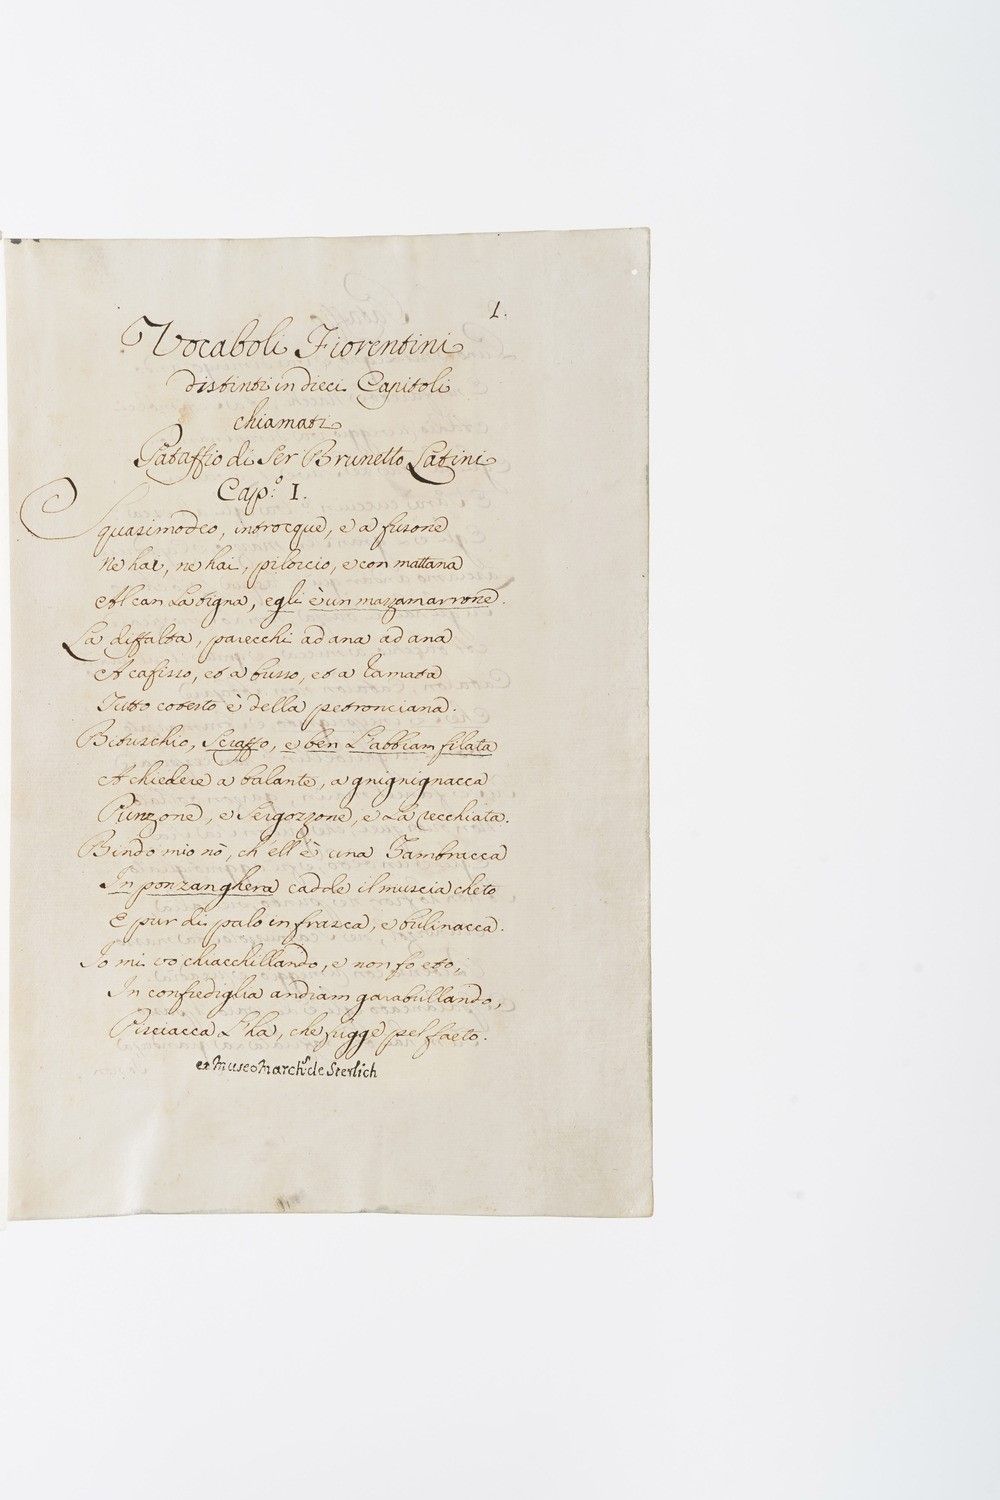 1.
Vocaboli Fiorentini
distinti in dieci Capitoli
chiamati
Pataffio di Ser Brunetto Latini
Cap.º I.
Squasimodeo, introcque, e a fusone
Ne hai, ne hai, pilorcio, e con mattana
Al can la tigna, egli è un mazzamarrone.
La diffalta, parecchi ad ana ad ana
A cafisso, et a busso, et a ramata
Tutto coverto è della petronciana.
Bituschio, Scraffo, e ben l'abbiam filata
A chiedere a balante, a gnignignacca
Punzone, e Sergozzone, e la recchiata.
Bindo mio nò, ch'ell'è una Zambracca
In ponzanghera cadde il muscia cheto
E pur di palo in frasca, e bulinacca.
Io mi vo chiacchillando, e non fo eto,
In confrediglia andiam garabullando,
Pisciacca l'ha, che fugge pel faeto.
ex Museo March.s de Sterlich